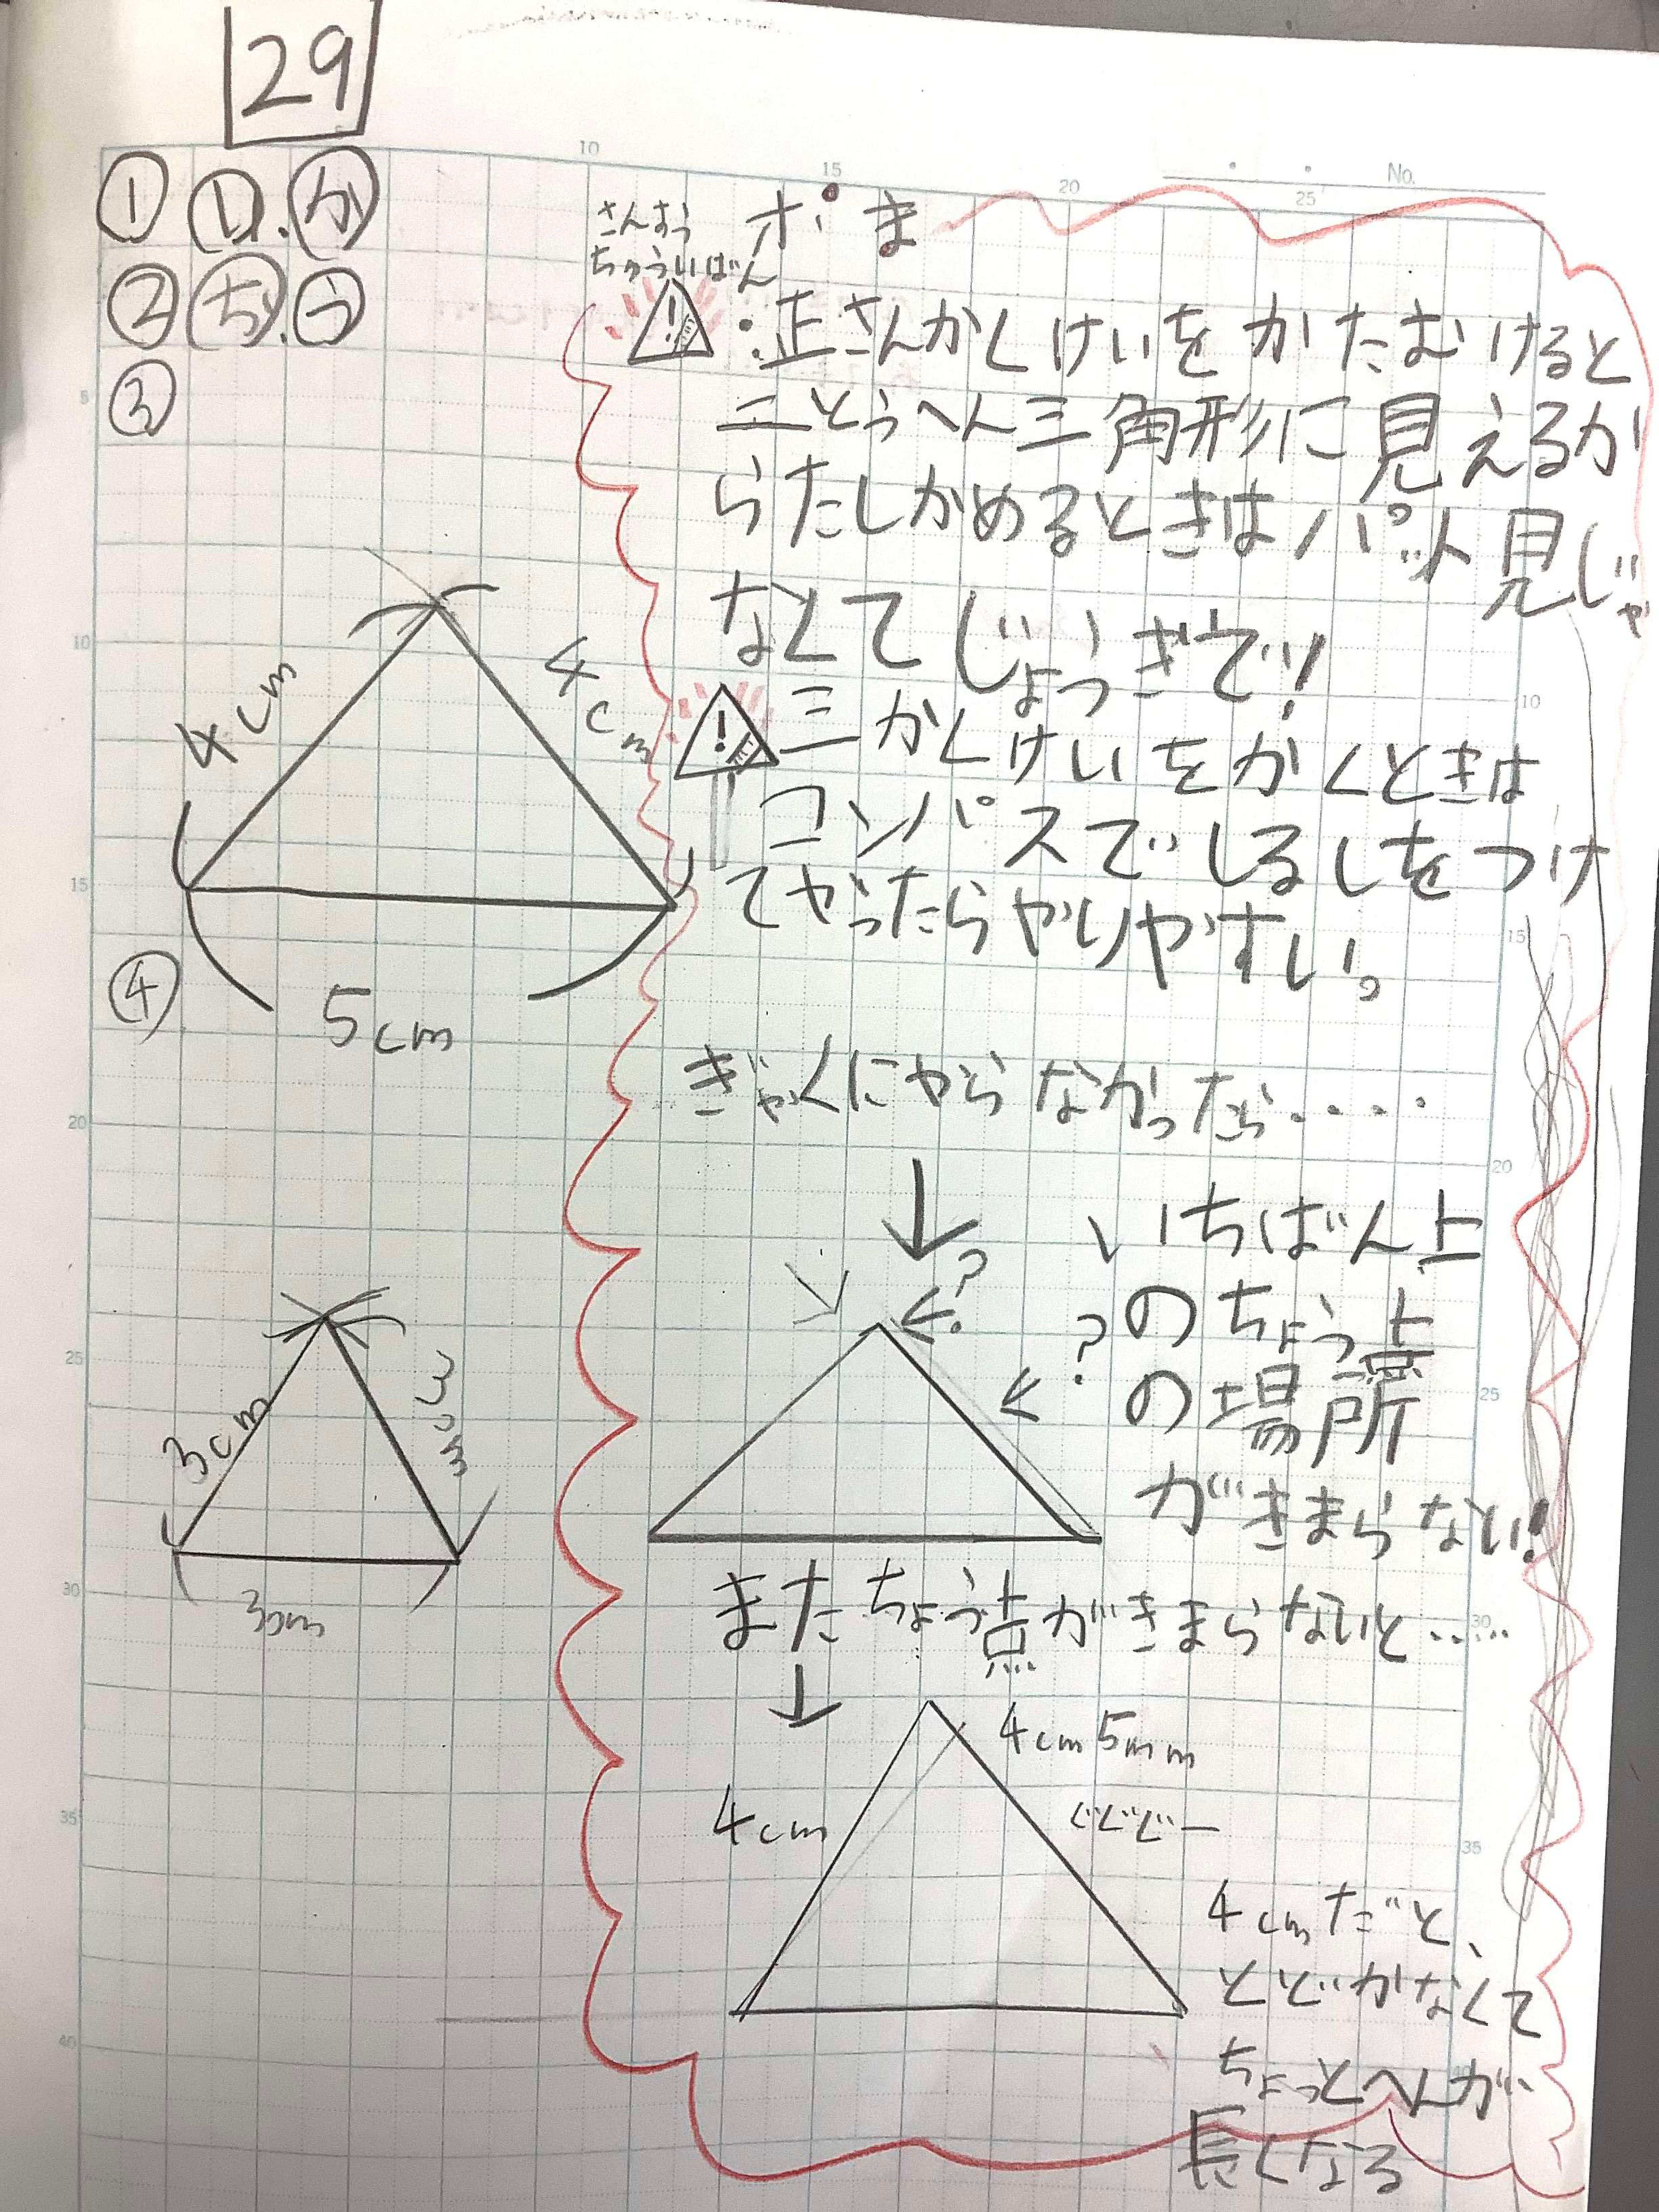 29
① い.か
② ち.う
③
4cm
4cm
5cm
④
3cm
3cm
3cm
No.
ポま
ちゅういばん
・正さんかくけいをかたむけると
二とうへん三角形に見えるか
らたしかめるときはパット見じゃ
なくてじょうぎで!
三かくけいをかくときは
コンパスでしるしをつけ
てやったらやりやすい。
ぎゃくにやらなかったら....
?
いちばん上
?のちょう点
の場所
がきまらない!
またちょう点がきまらないと.....
4cm5mm
4cm
4cmだと、
とどかなくて
ちょっとへんが
長くなる